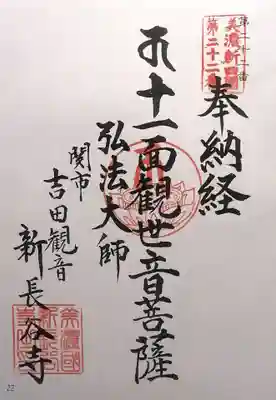 奉納経
美濃新四国
第二十二番
十一面観世音菩薩
弘法大師
関市
吉田観音
新長谷寺
22